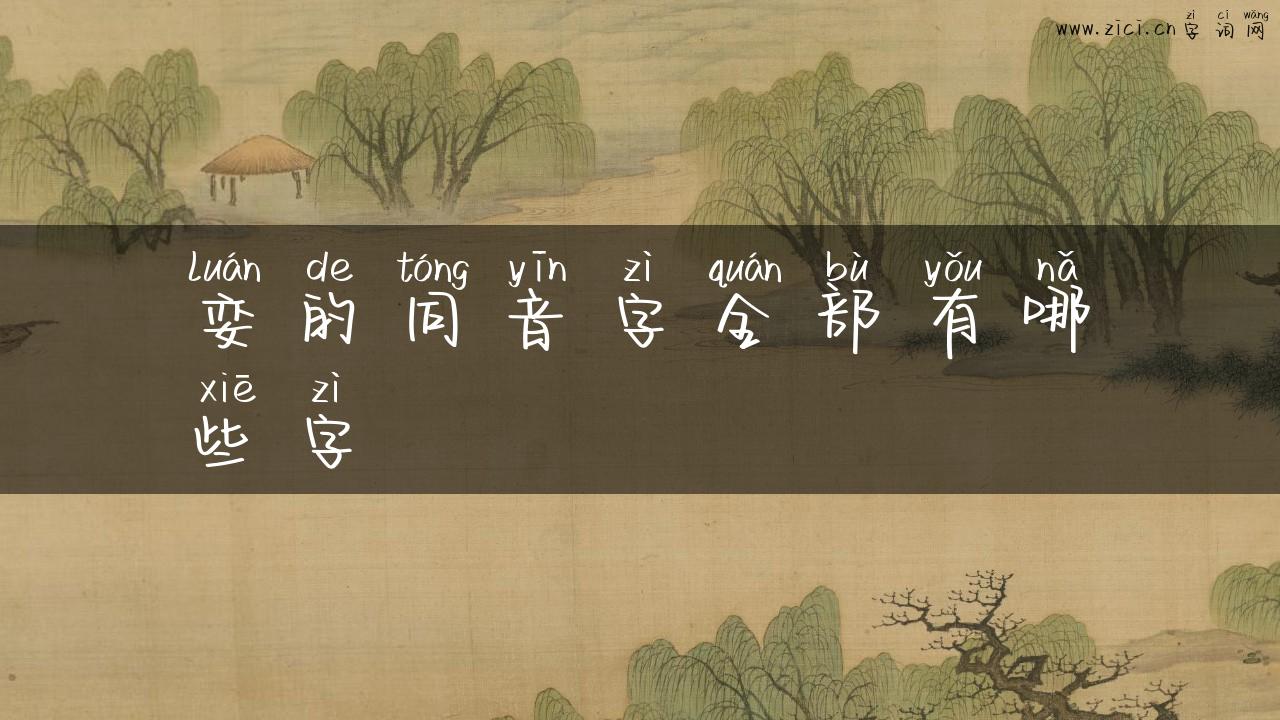 zì cí wǎng
www.zici.cn字词网
luán de tóng yīn zì quán bù yǒu nǎ
娈的同音字全部有哪
xiē zì
些字